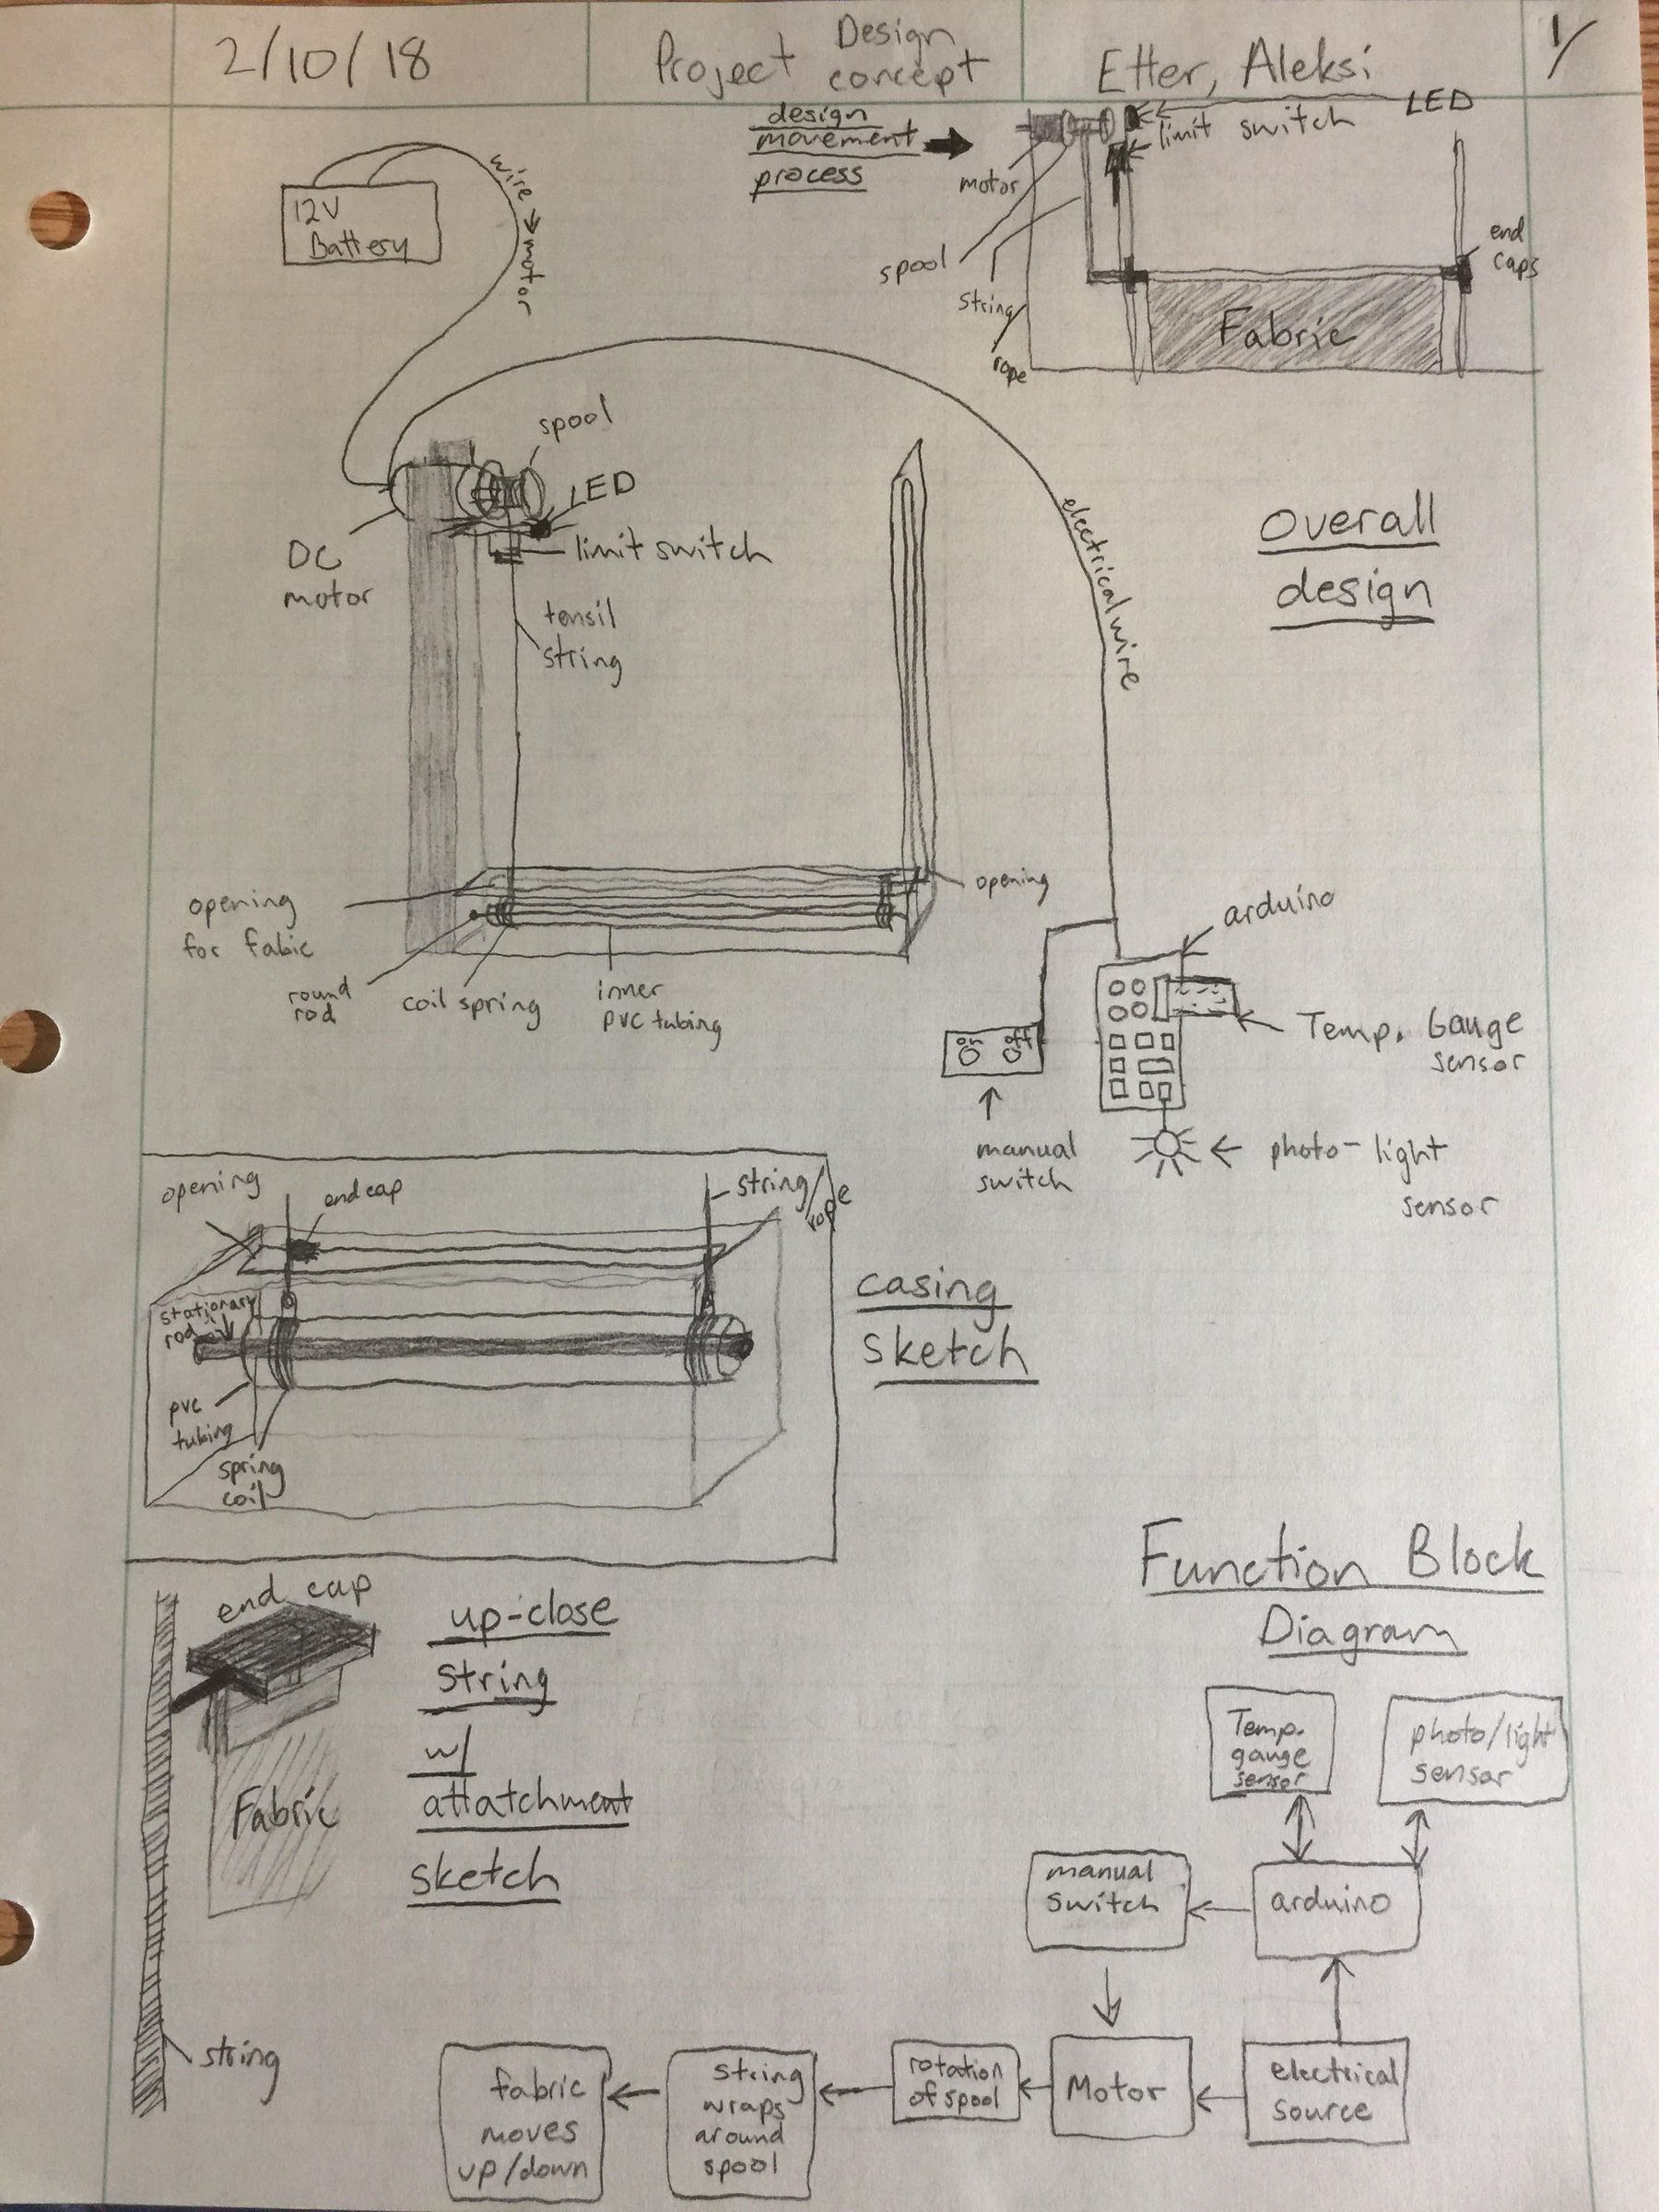 2/10/18
Project Design
concept
Etter, Aleksi
1/
design
movement
process
LED
limit switch
motor
spool
string/
rope
end
caps
Fabric
12V
Battery
wire → motor
spool
LED
limit switch
DC
motor
tensil
string
electrical wire
Overall
design
opening
for fabic
round
rod
coil spring
inner
PVC tubing
opening
arduino
on off
Temp. Gauge
sensor
manual
switch
photo-light
sensor
opening
end cap
string/
rope
stationary
rod
pvc
tubing
spring
coil
casing
sketch
end cap
Fabric
string
up-close
string
w/
attatchment
sketch
Function Block
Diagram
Temp.
gauge
sensor
photo/light
sensor
manual
switch
arduino
fabric
moves
up/down
string
wraps
around
spool
rotation
of spool
Motor
electrical
source